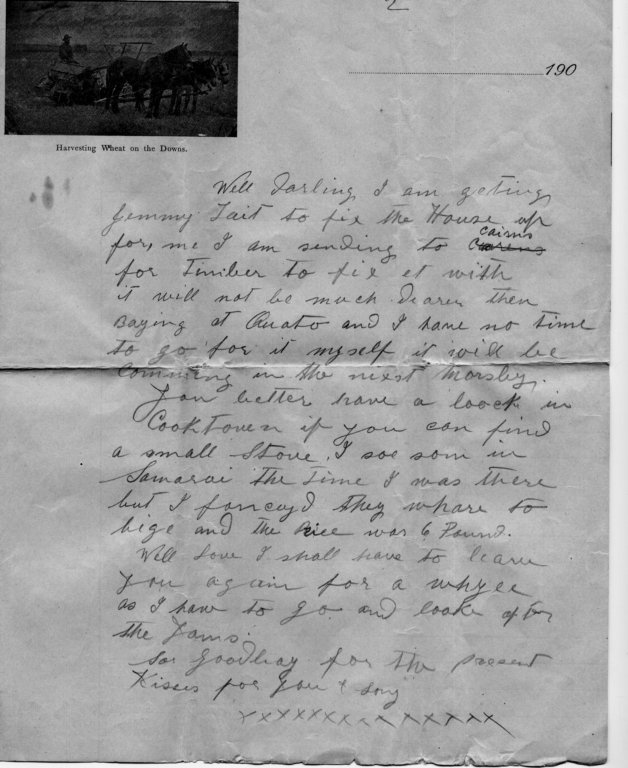 2
190
Harvesting Wheat on the Downs.
Well Darling I am geting
Jemmy Tait to fix the House up
for, me I am sending to Cairns
for Timber to fix et with
it will not be much dearer then
Baying at Quato and I have no time
to go for it myself it will be
Comming in the nixst Morsby.
You better have a loock in
Cooktoven if you can find
a small Stove. I soe som in
Samarai the time I was there
but I fanceyd they whare to
bige and the Price was 6 Pound.
Well Love I shall have to leave
you again for a whyee
as I have to go and looke after
the Yams.
Soe Goodbay for the present
Kisses for you &
xxxxxxxxxxxxxxx